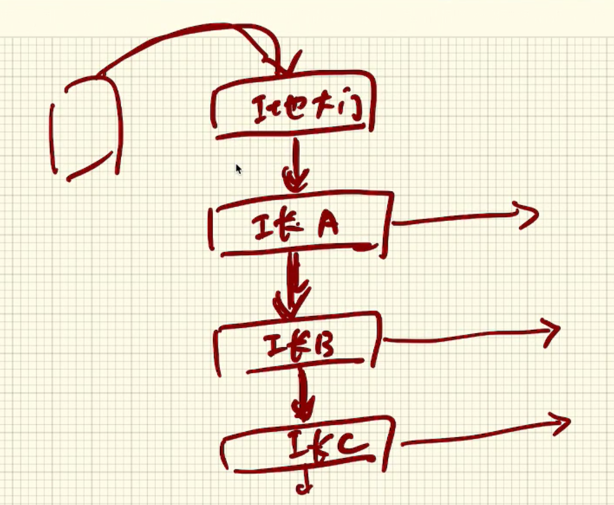 工地大门
工长A
工长B
工长C